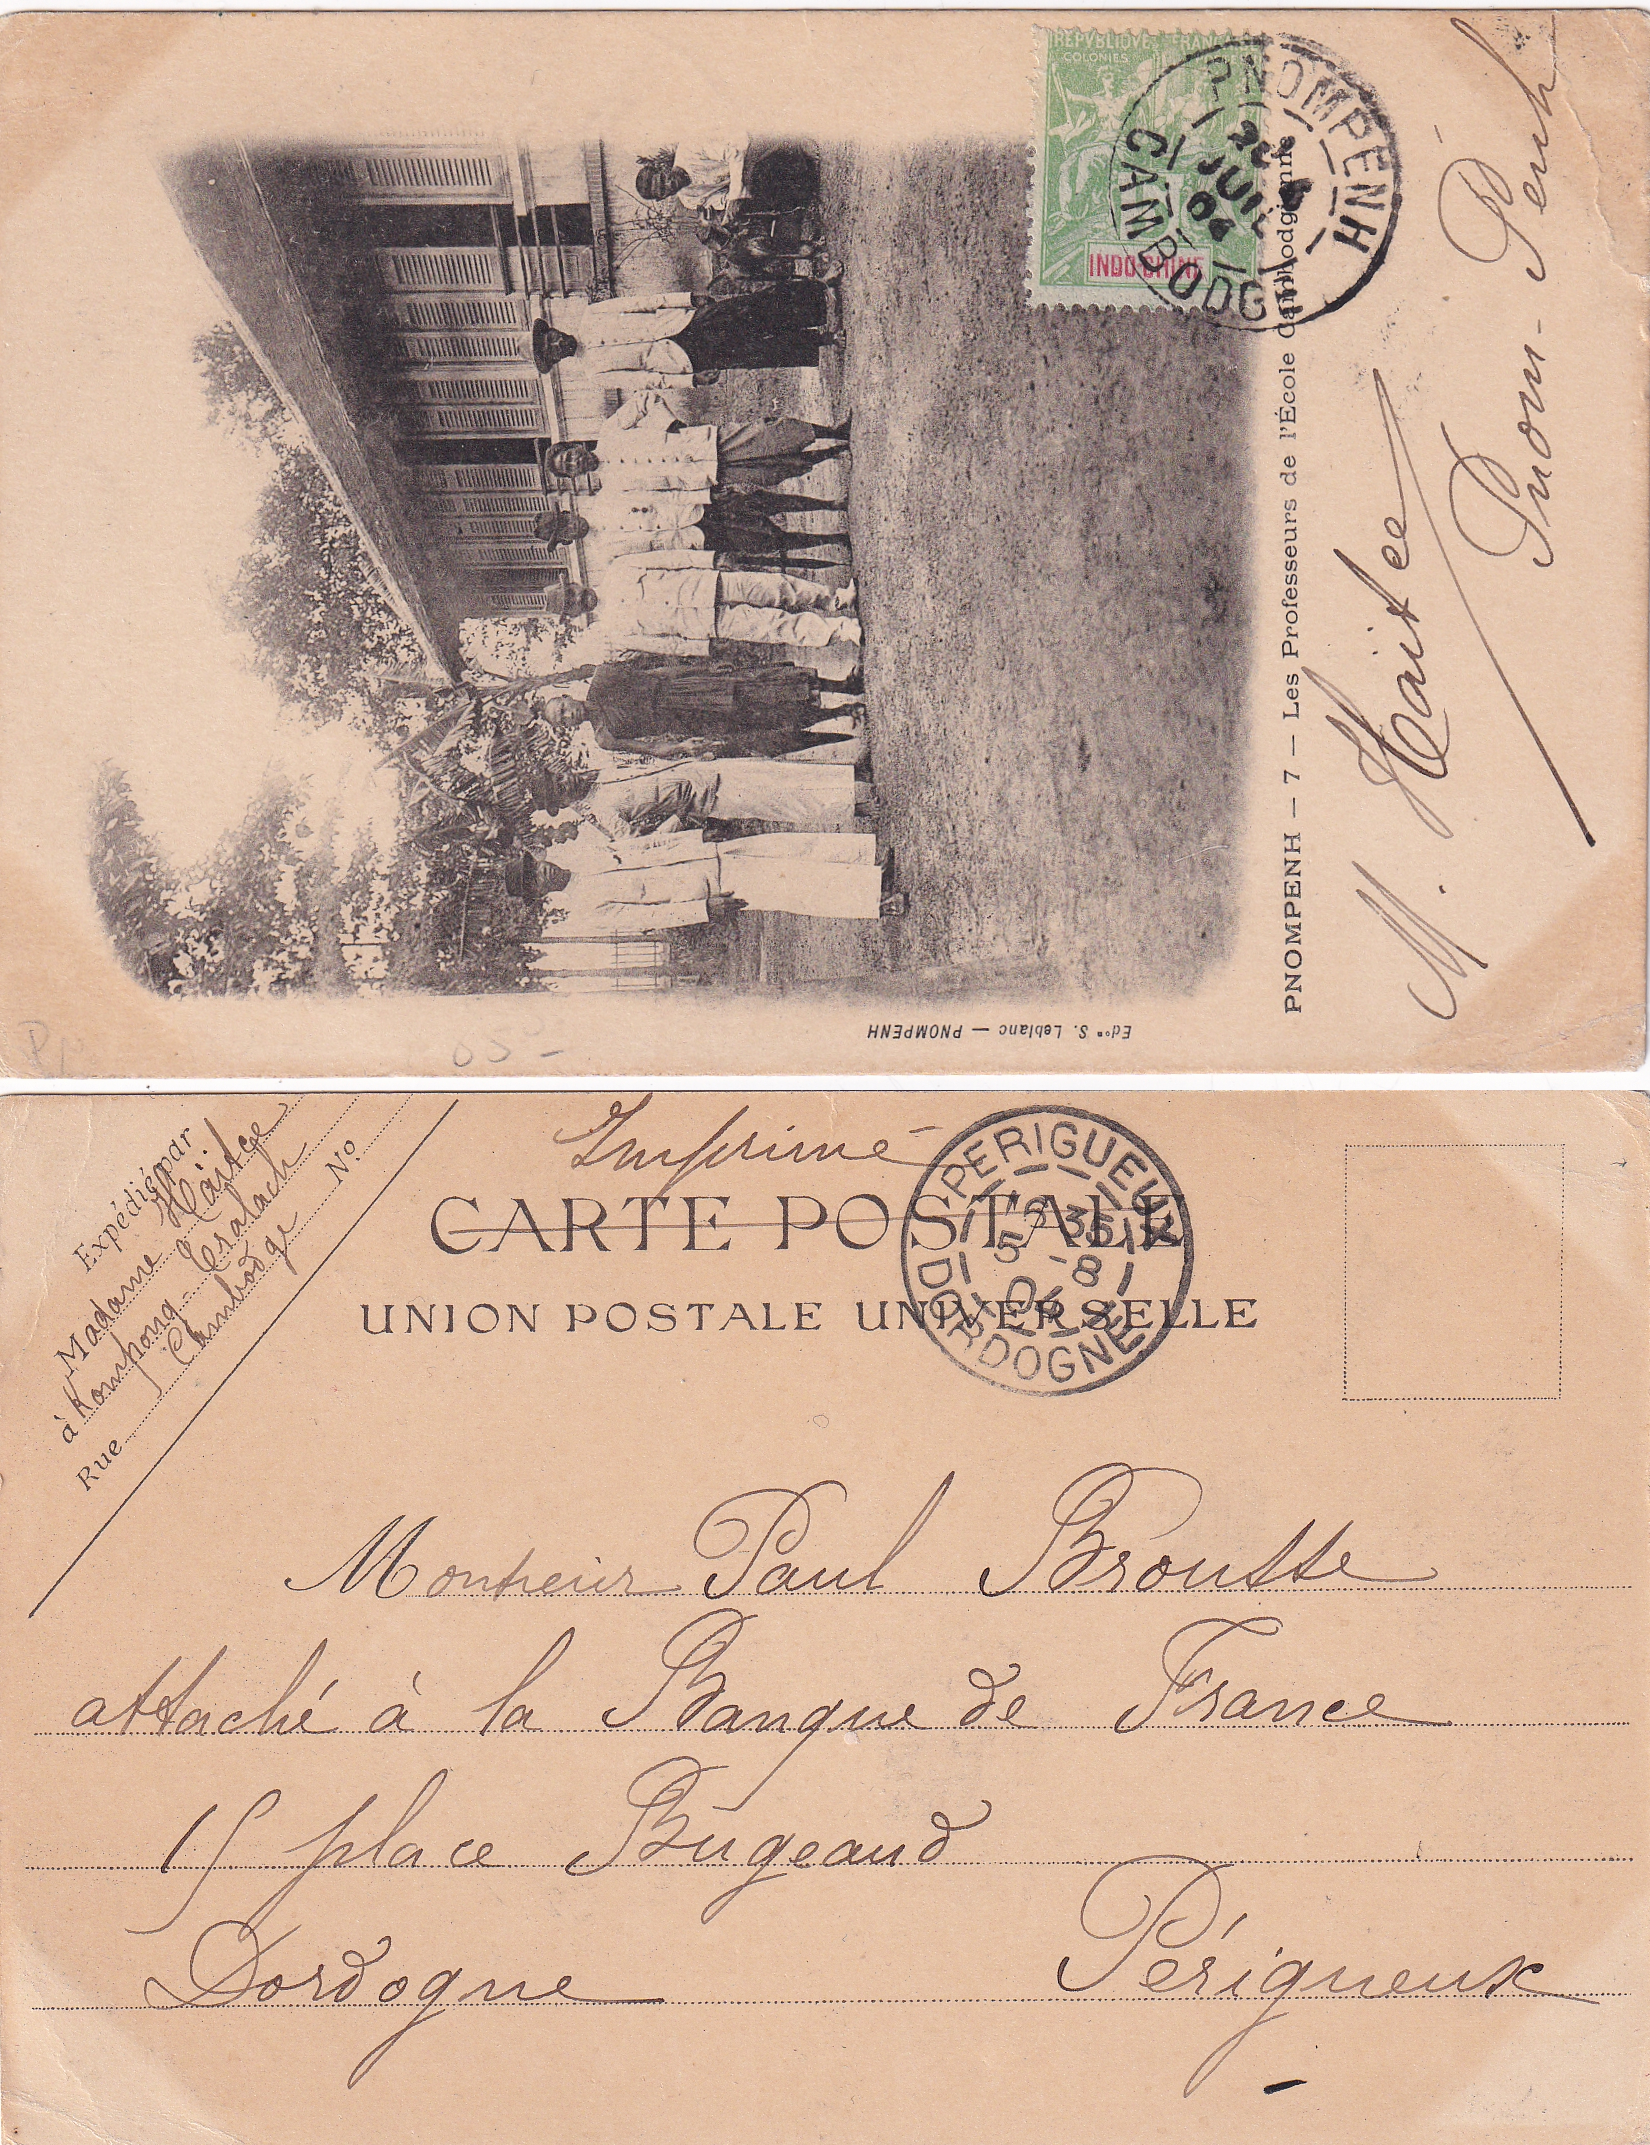 REPVBLIQVE FRANÇA
COLONIES
INDO-CHINE
PNOMPENH
JUIL
04
CAMBODGE
PNOMPENH — 7 — Les Professeurs de l'École Cambodgienne
Edon S. Leblanc — PNOMPENH
M. Haitce
Pnom-Penh
Expédié par
Madame Haitce
à Kompong-Tralach
Cambodge
Rue No
Imprimé
CARTE POSTALE
UNION POSTALE UNIVERSELLE
PERIGUEUX
6 35
5 -8
04
DORDOGNE
Monsieur Paul Brousse
attaché à la Banque de France
15 place Bugeaud
Dordogne Périgueux